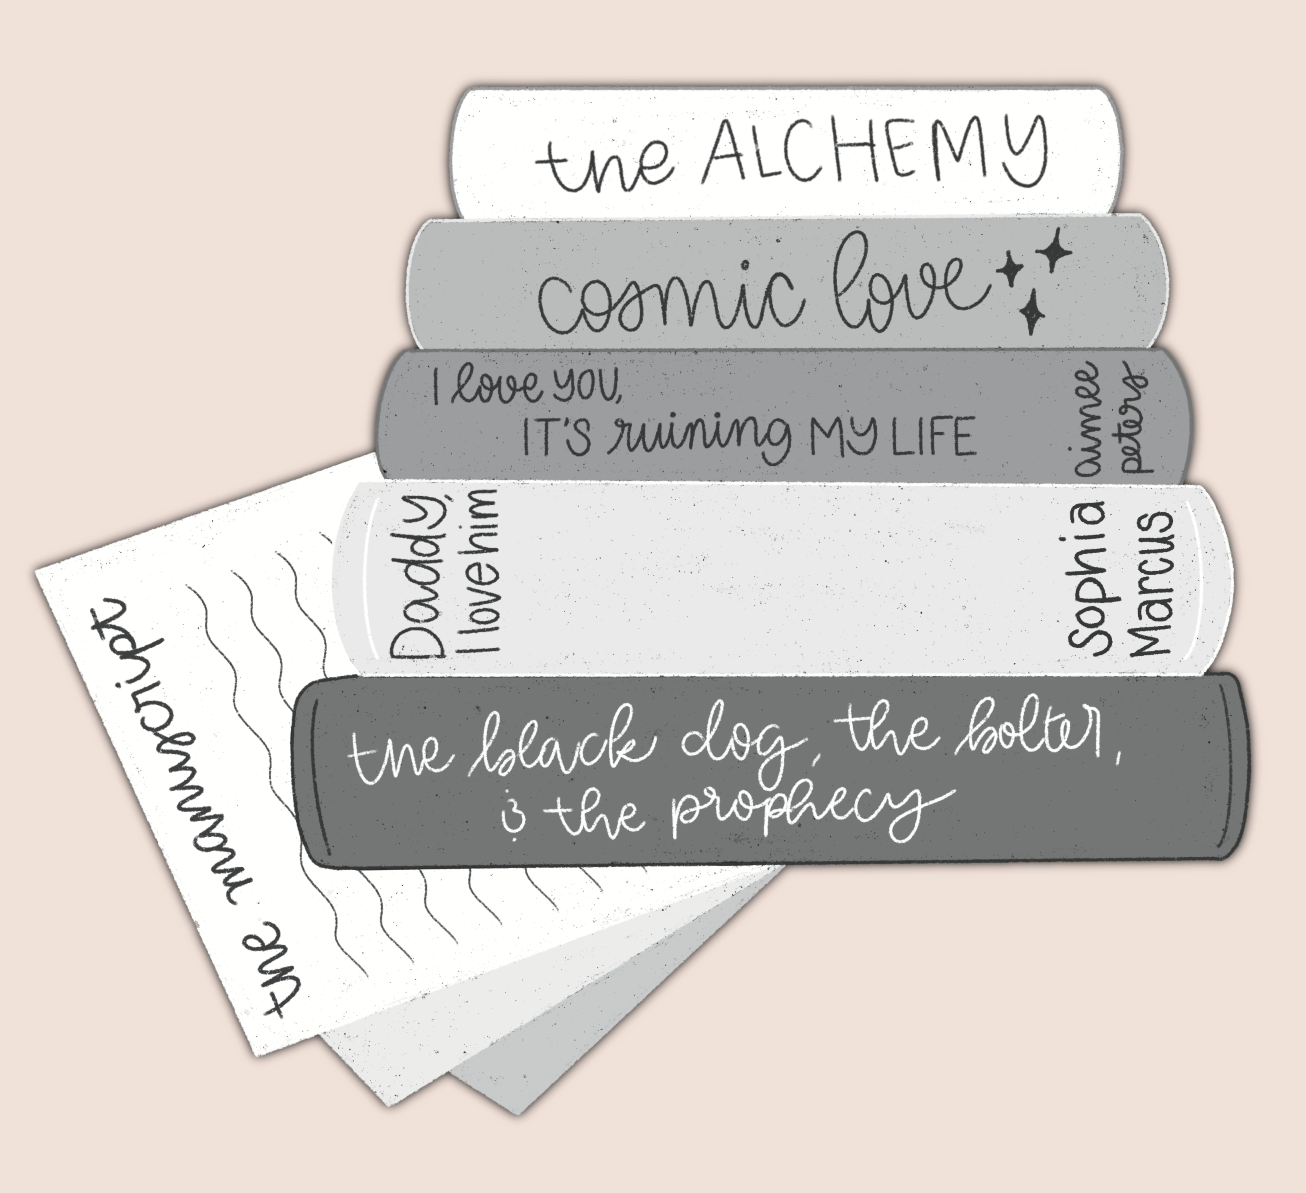 the ALCHEMY
cosmic love
I love YOU,
IT'S ruining MY LIFE
aimee
peters
Daddy,
I love him
Sophia
Marcus
the black dog, the bolter,
& the prophecy
the manuscript